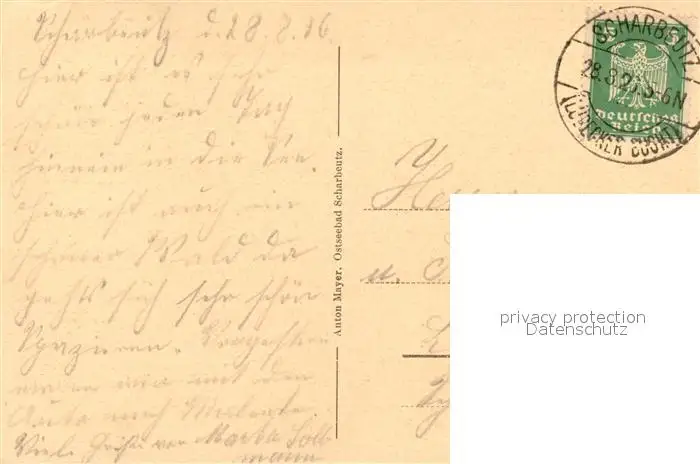 Scharbeutz d. 28.8.26.
Hier ist es sehr
schön jeden Tag
hinein in die See.
Hier ist auch ein
schöner Wald da
gehts sich sehr schön
Spazieren. Vorgestern
waren wir mit den
Auto nach Malente.
Viele Grüße von Martha
Anton Mayer, Ostseebad Scharbeutz.
SCHARBEUTZ
28.8.26 5-6N
(LÜBECKER BUCHT)
Deutsches
Reich
u.
privacy protection
Datenschutz